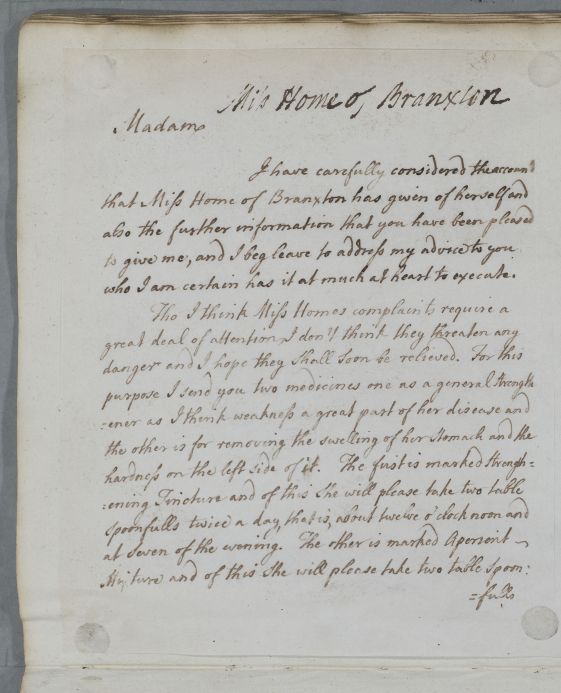 Miss Home of Branxton
Madam
I have carefully considered the account
that Miss Home of Branxton has given of herself and
also the further information that you have been pleased
to give me, and I beg leave to address my advice to you
who I am certain has it at much at heart to execute.
Tho I think Miss Homes complaints require a
great deal of attention, I don't think they threaten any
danger and I hope they shall soon be relieved. For this
purpose I send you two medicines one as a general strength
=ener as I think weakness a great part of her disease and
the other is for removing the swelling of her Stomach and the
hardness on the left side of it. The first is marked strength=
=ening Tincture and of this she will please take two table
spoonfulls twice a day, that is, about twelve o'clock noon and
at seven of the evening. The other is marked Aperient
Mixture and of this she will please take two table spoon=
=fulls